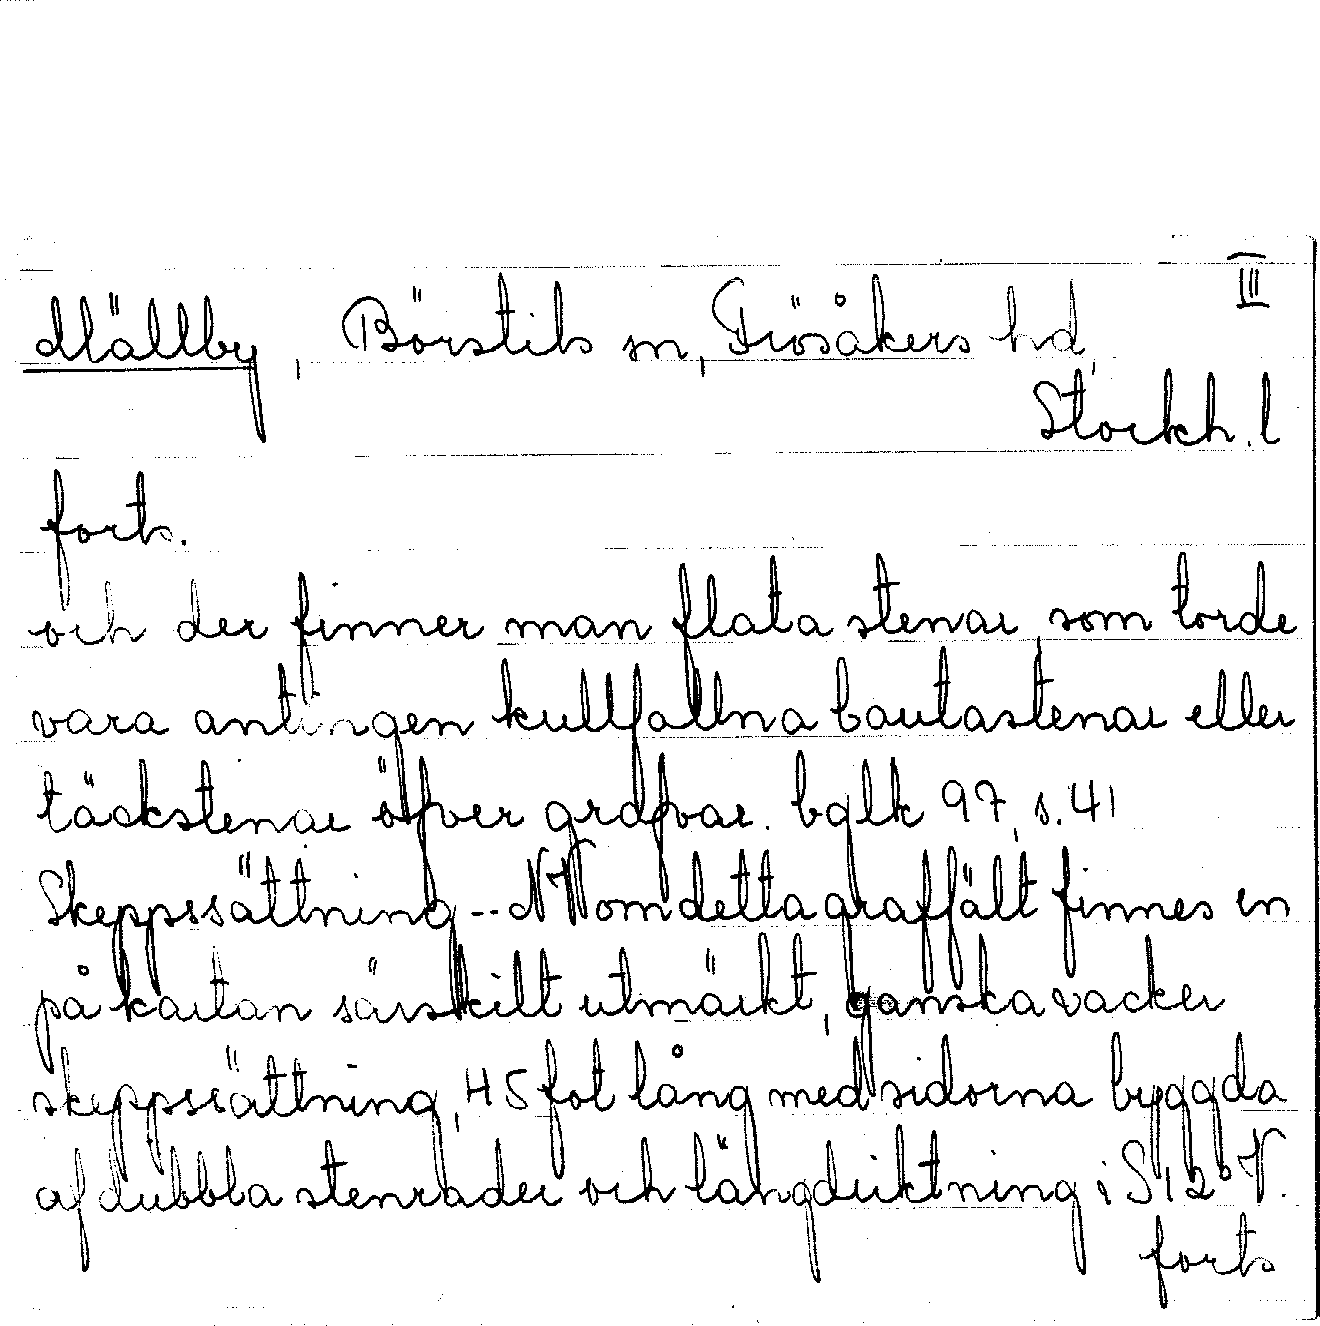 III
Mällby, Börstils sn, Frösåkers hd,
Stockh. l
forts.
och der finner man flata stenar, som torde
vara antingen kullfallna bautastenar eller
täckstenar öfver grafvar. bglk 97, s. 41
Skeppssättning -- NV om detta graffält finnes en
på kartan särskilt utmärkt, ganska vacker
skeppssättning, 45 fot lång med sidorna byggda
af dubbla stenrader och längdriktning i S 12° V.
forts